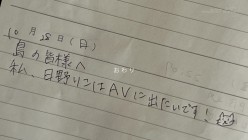 10月28日(日)
島の皆様へ
おわり
私、日野りこはAVに出たいです!